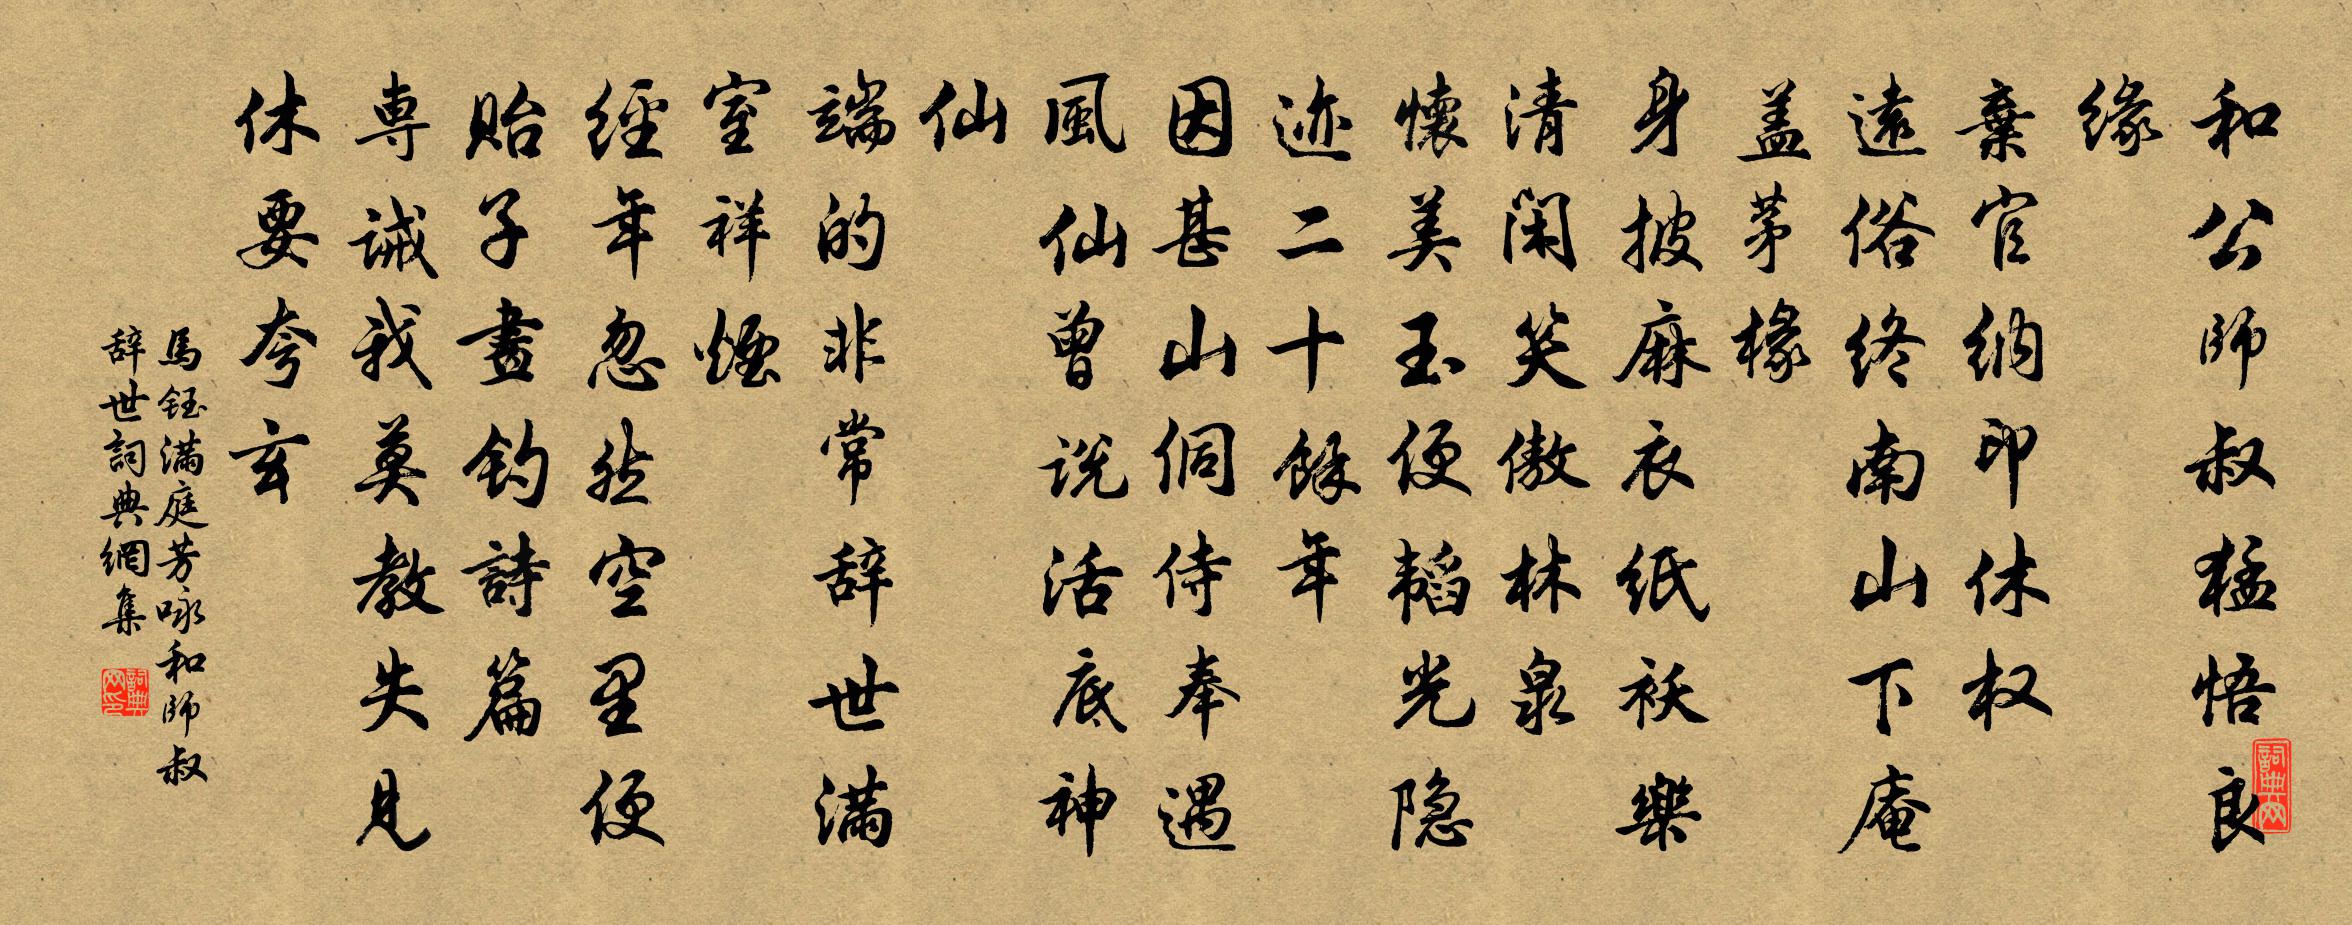 和公師叔猛悟良
缘
棄官納印休权
遠俗终南山下庵
盖茅椽
身披麻衣纸袄樂
清闲笑傲林泉
懷美玉便韬光隐
迹二十餘年
因甚山侗侍奉遇
風仙曾说活底神
仙
端的非常辞世满
室祥煙
經年忽然空里便
贻子畫钓詩篇
専诫我莫教失見
休要夸玄
馬钰满庭芳咏和師叔
辞世詞典網集
詞典网
詞典网印